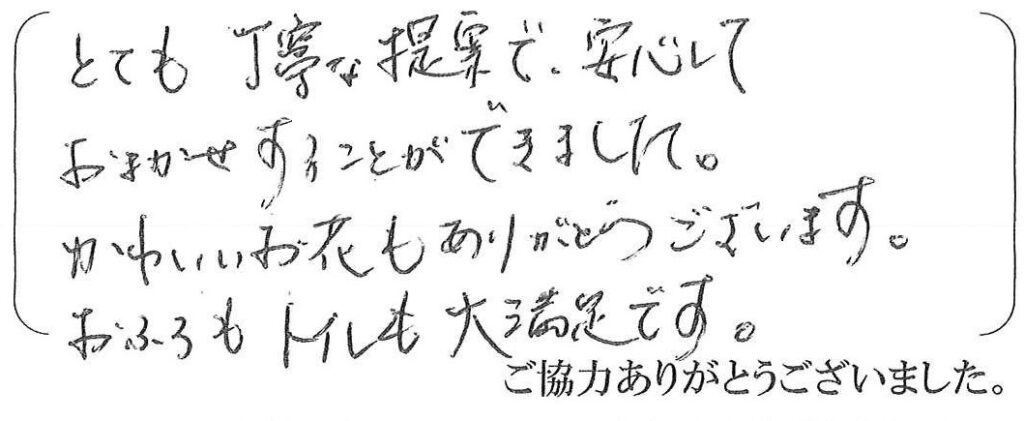 とても丁寧な提案で、安心して
おまかせすることができました。
かわいいお花もありがとうございます。
おふろもトイレも大満足です。
ご協力ありがとうございました。